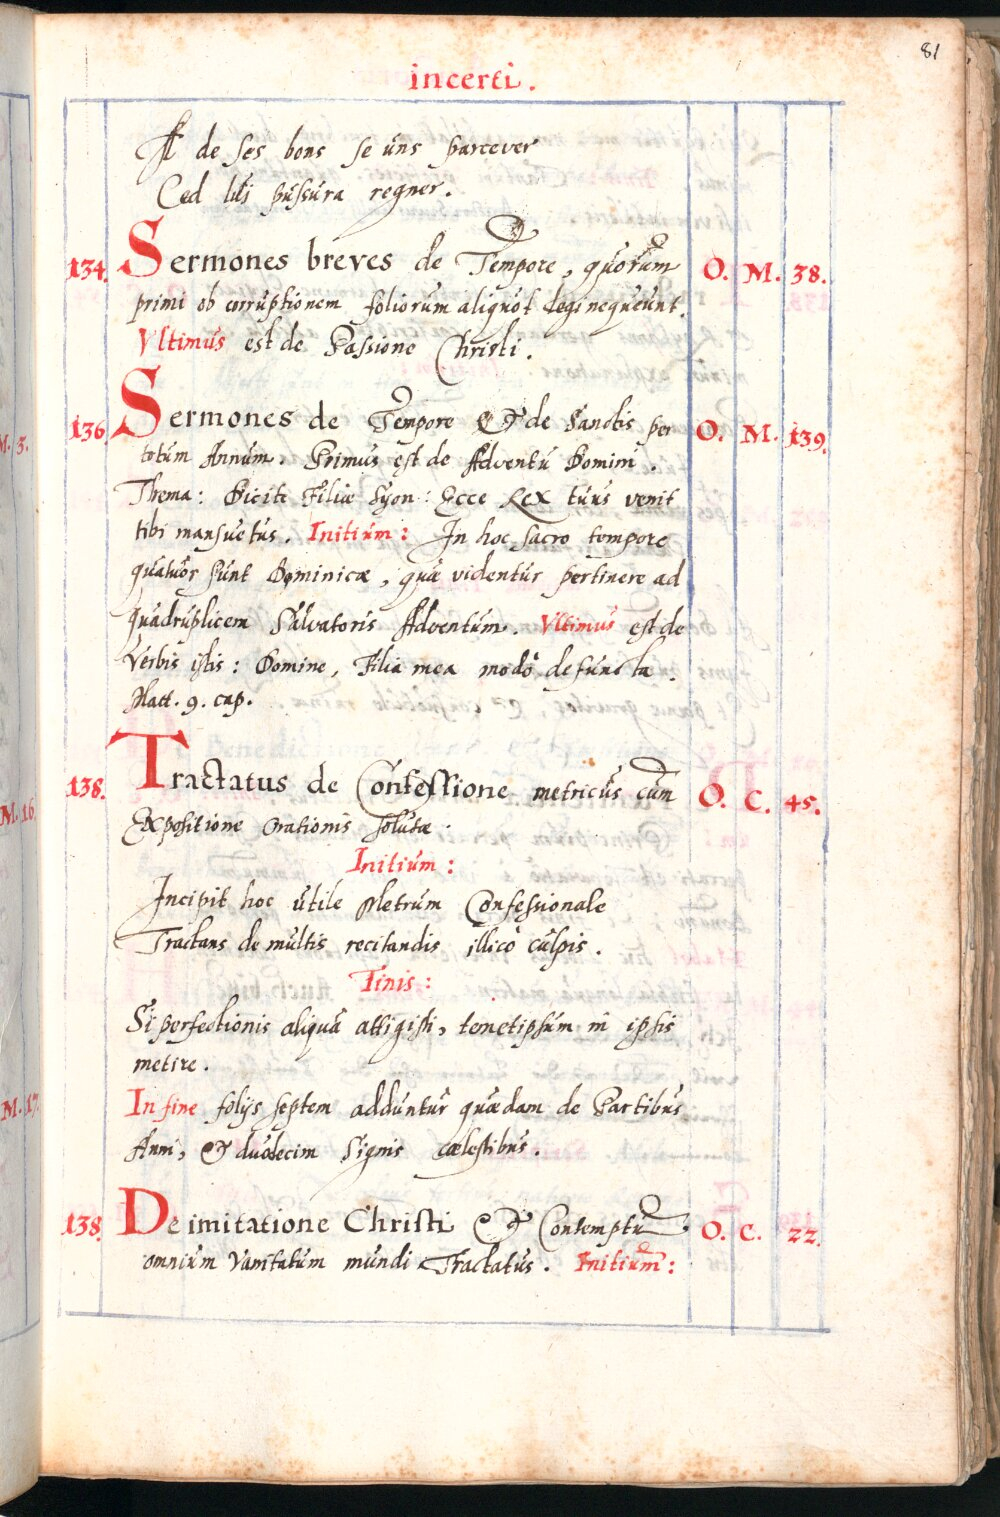 81
incerti.
A de ses bons se uns parcever
Ced lui pussura regner.
134. Sermones breves de Tempore, quorum O. M. 38.
primi ob corruptionem foliorum aliquot legi nequeunt.
Vltimus est de Passione Christi.
136 Sermones de Tempore & de Sanctis per O. M. 139.
totum Annum. Primus est de Adventu Domini.
Thema: Dicite Filiæ Syon: Ecce Rex tuus venit
tibi mansuetus. Initium: In hoc sacro tempore
quatuor sunt Dominicæ, quæ videntur pertinere ad
quadruplicem Salvatoris Adventum. Vltimus est de
Verbis istis: Domine, Filia mea modò defuncta.
Matt. 9. cap.
138. Tractatus de Confessione metricus cum O. C. 45.
Expositione Orationis solutæ.
Initium:
Incipit hoc utile Metrum Confessionale
Tractans de multis recitandis illicò culpis.
Finis:
Si perfectionis aliquâ attigisti, temetipsum in ipsis
metire.
In fine folijs septem adduntur quædam de Partibus
Anni, & duodecim Signis cælestibus.
138. De imitatione Christi & Contemptu O. C. 22.
omnium Vanitatum mundi Tractatus. Initium:
M. 3.
M. 16.
M. 17.